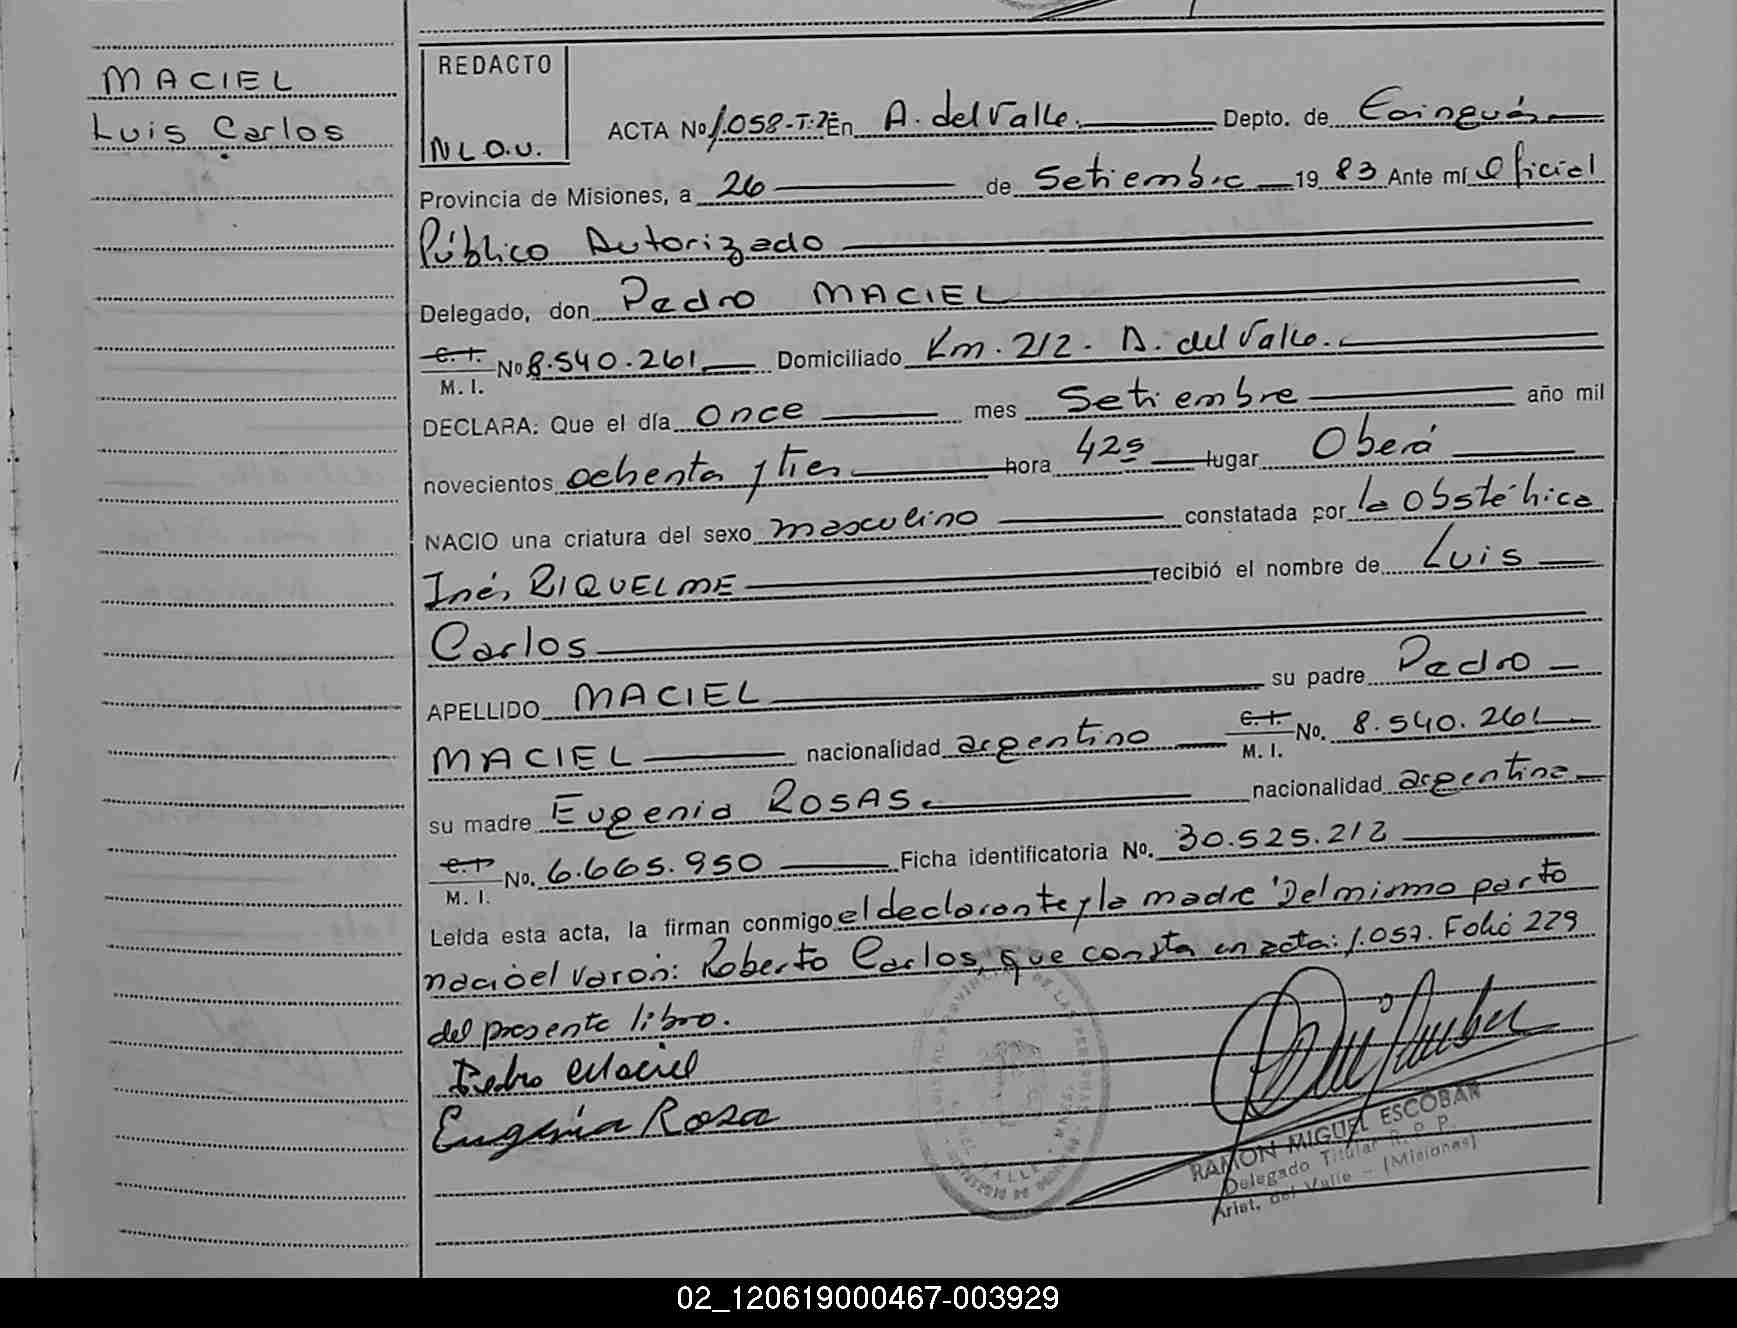 MACIEL
Luis Carlos
REDACTO
N.L.O.U.
ACTA No 1.058-T.2º En A. del Valle. Depto. de Cainguás
Provincia de Misiones, a 26 de Setiembre 1983 Ante mí Oficial
Público Autorizado
Delegado, don Pedro MACIEL
C. I. M. I. No 8.540.261 Domiciliado Km. 212. A. del Valle.
DECLARA: Que el día once mes Setiembre año mil
novecientos ochenta y tres hora 425 lugar Oberá
NACIO una criatura del sexo masculino constatada por la obstétrica
Inés RIQUELME recibió el nombre de Luis
Carlos
APELLIDO MACIEL su padre Pedro
MACIEL nacionalidad argentino C. I. M. I. No. 8.540.261
su madre Eugenia ROSAS. nacionalidad argentina
C. I. M. I. No. 6.665.950 Ficha identificatoria No. 30.525.212
Leída esta acta, la firman conmigo el declarante y la madre Del mismo parto
nació el varón: Roberto Carlos, que consta en acta: 1.057. Folio 229
del presente libro.
Pedro Maciel
Eugenia Rosa
RAMON MIGUEL ESCOBAR
Delegado Titular R. P. P.
Arist. del Valle - (Misiones)
02_120619000467-003929